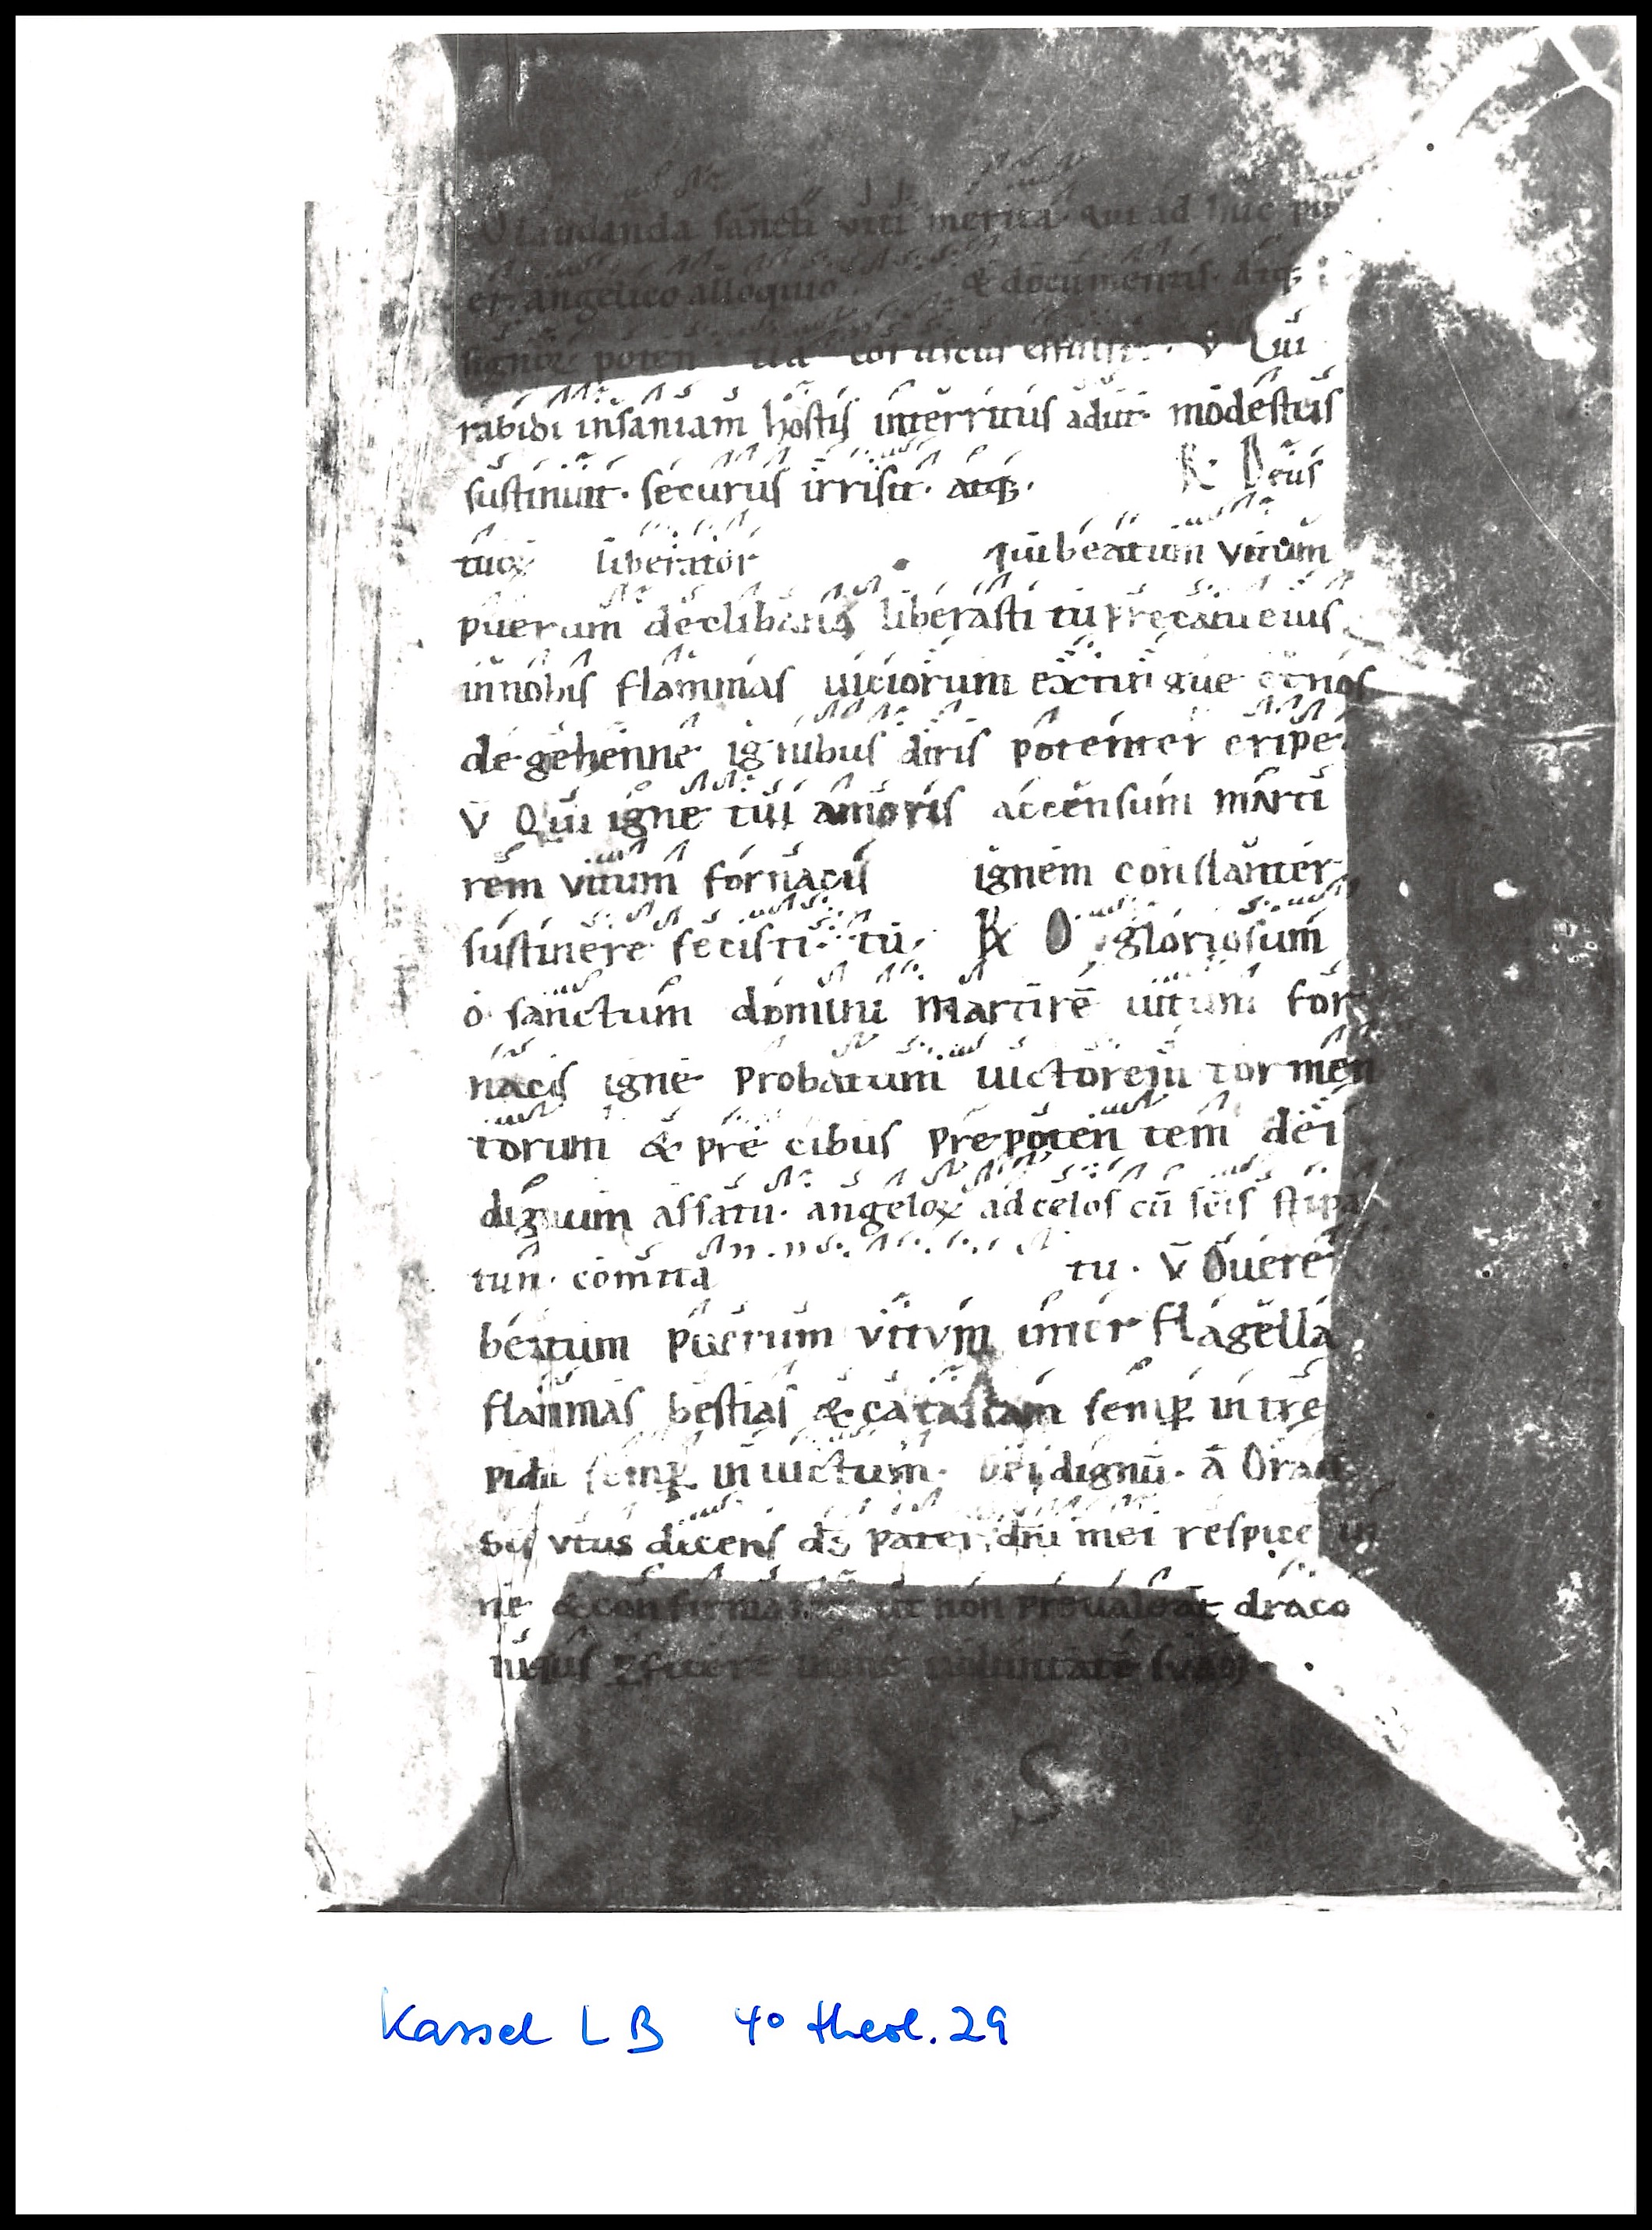 O laudanda sancti viti merita qui ad huc pu
er angelico alloquio & documentis atq;
signoꝝ poten tia coruscus effulsit. V Qui
rabidi insaniam hostis interritus adiit modestus
sustinuit. securus irrisit. atq;. R: Deus
tuoꝝ liberator qui beatum vitum
puerum declibanis liberasti tu precatu eius
in nobis flammas uiciorum extingue et nos
de gehenne ignibus diris potenter eripe.
V Qui igne tui amoris accensum marti
rem vitum fornacis ignem constanter
sustinere fecisti. tu. R O gloriosum
o sanctum domini martirē uitum for
nacis igne probatum uictorem tormen
torum & pre cibus prepoten tem dei
dignum affatu. angeloꝝ ad celos cū scīs stipa
tun. comita tu. V O uere
beatum puerum vitvm inter flagella
flammas bestias & catastam semꝑ intre
pidū semꝑ in uictum. Dei dignū. ā Oran
vitus dicens ds pater dni mei respice in
me & confirma me ut non preualeat draco
suam.
S
Kassel LB 4° theol. 29